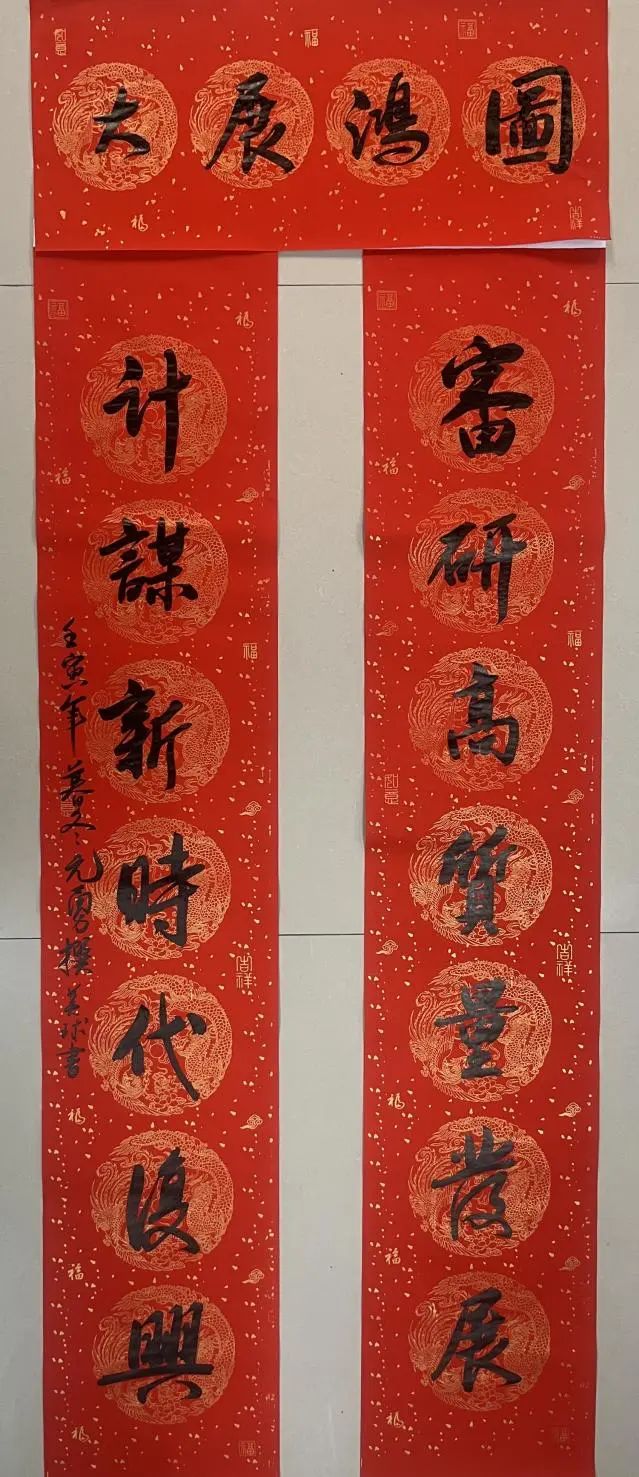 大展鴻圖
審研高質量發展
計謀新時代復興
壬寅年暮冬元勇撰美球書